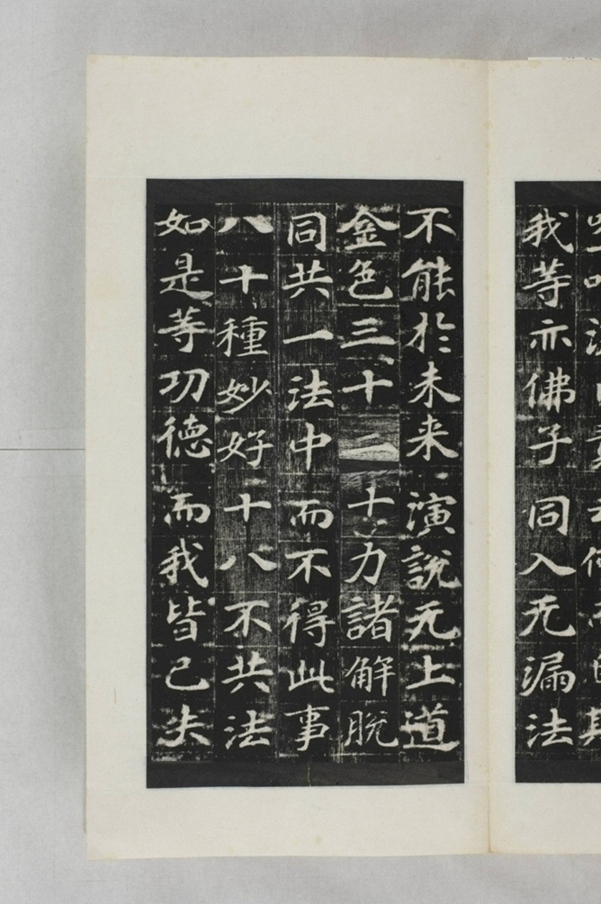 我等亦佛子同入无漏法
不能於未来演說无上道
金色三十二十力諸解脫
同共一法中而不得此事
八十種妙好十八不共法
如是等功德而我皆已失